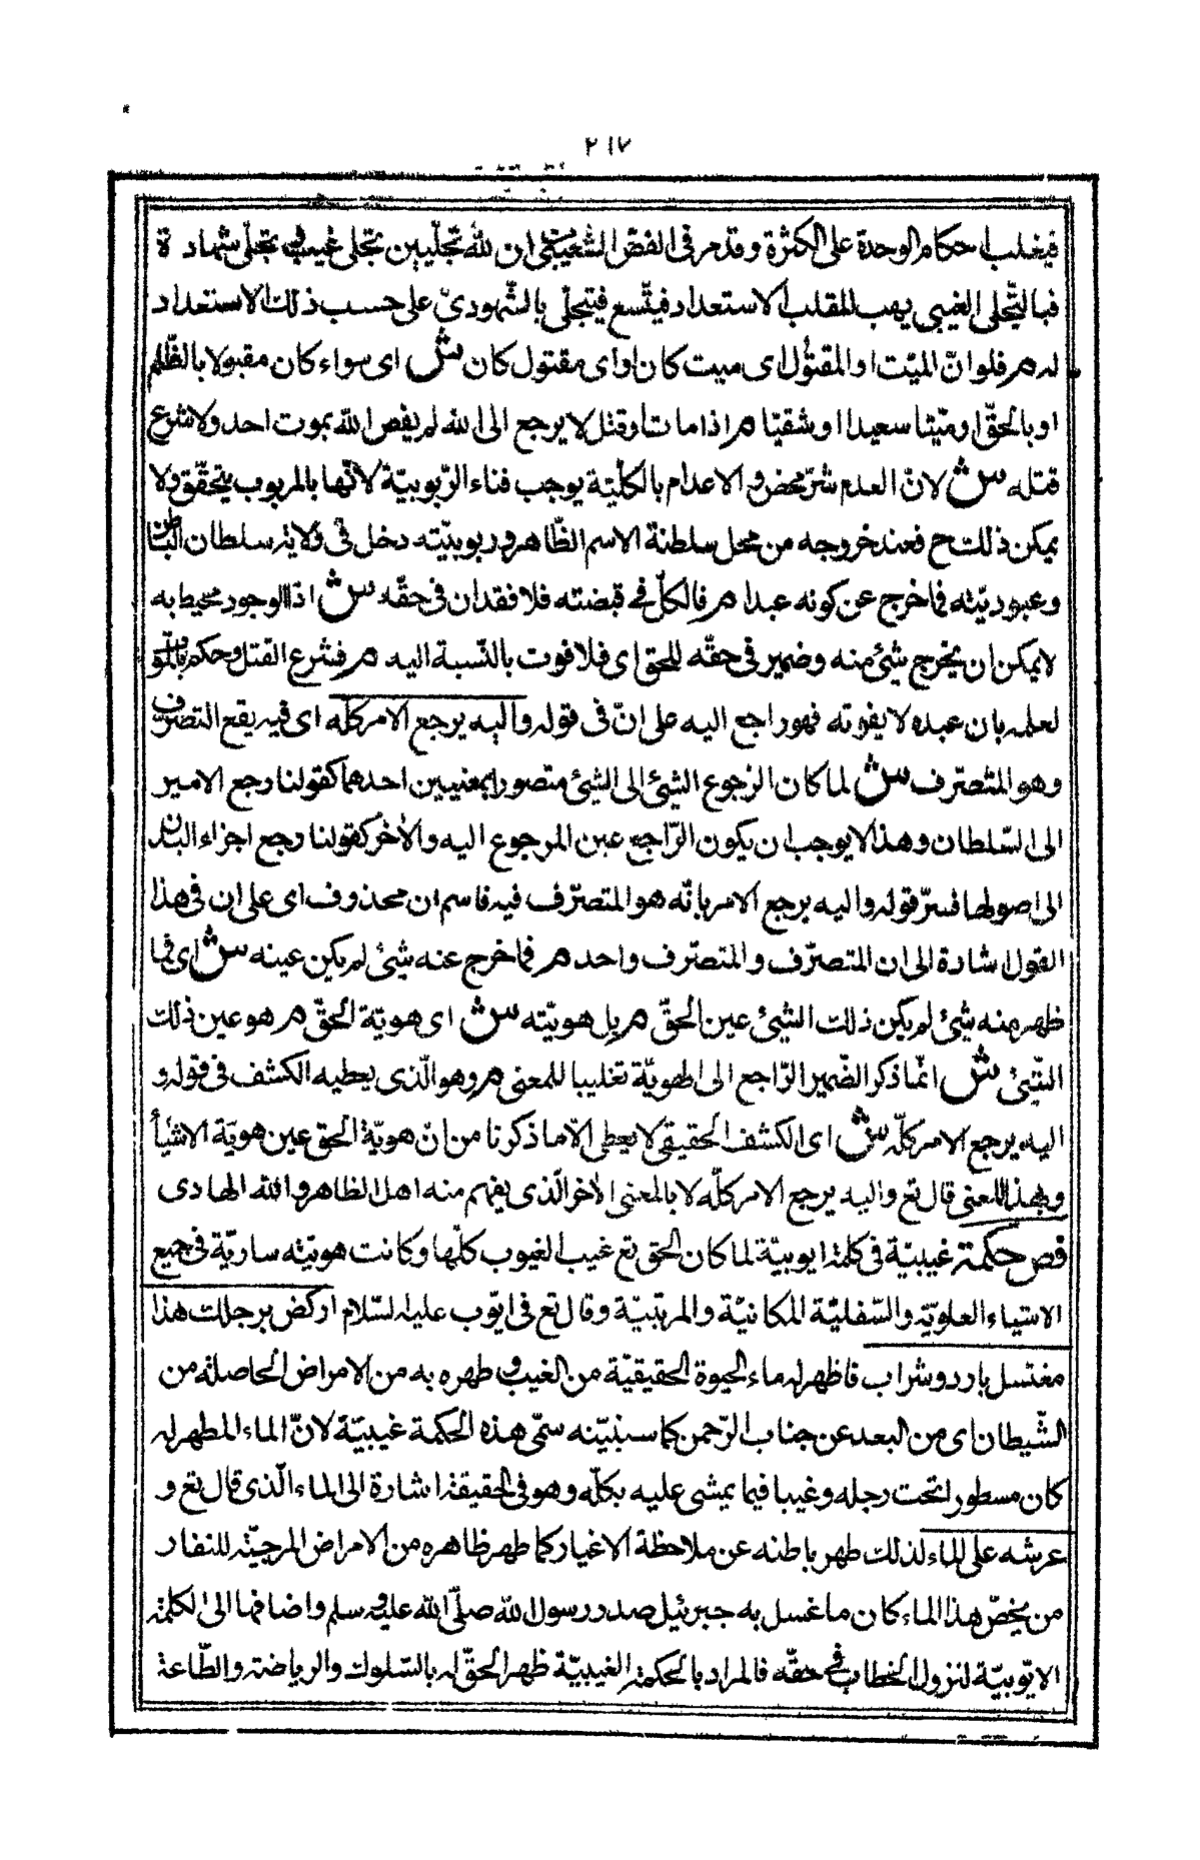 ٢١٧
فيغلب احكام الوحدة على الكثرة وقد مر فى الفص الشعيبى ان لله تجليين تجلى غيب و تجلى شهادة
فبالتجلى الغيبى يهب للقلب الاستعداد فيتسع فيتجلى بالشهودى على حسب ذلك الاستعداد
له م فلو ان الميت او المقتول اى ميت كان او اى مقتول كان ش اى سواء كان مقبولا بالظلم
او بالحق او ميتا سعيدا او شقيا م اذا مات او قتل لا يرجع الى الله لم يفص الله بموت احد ولا شرع
قتله ش لان العدم شر محض و الاعدام بالكلية يوجب فناء الربوبية لانها بالمربوب يتحقق ولا
يمكن ذلك ح فعند خروجه من محل سلطنة الاسم الظاهر و ربوبيته دخل فى ولاية سلطان الباطن
وعبوديته فما خرج عن كونه عبدا م فالكل فى قبضته فلا فقدان فى حقه ش اذ الوجود محيط به
لا يمكن ان يخرج شئ منه وضمير فى حقه للحق اى فلا فوت بالنسبة اليه م فشرع القتل وحكم بالموت
لعلمه بان عبده لا يفوته فهو راجع اليه على ان فى قوله واليه يرجع الامر كله اى فيه يقع التصرف
وهو المتصرف ش لما كان الرجوع الشئ الى الشئ متصورا بمعنيين احدهما كقولنا رجع الامير
الى السلطان وهذا لا يوجب ان يكون الراجع عين المرجوع اليه والاخر كقولنا رجع اجزاء البدن
الى اصولها فسر قوله واليه يرجع الامر بانه هو المتصرف فيه فاسم ان محذوف اى على ان فى هذا
القول اشارة الى ان المتصرف و المتصرف واحد م فما خرج عنه شئ لم يكن عينه ش اى فما
ظهر منه شئ لم يكن ذلك الشئ عين الحق م بل هويته ش اى هوية الحق م هو عين ذلك
الشئ ش انما ذكر الضمير الراجع الى الهوية تغليبا للمعنى م وهو الذى يعطيه الكشف فى قوله و
اليه يرجع الامر كله ش اى الكشف الحقيقى لا يعطى الا ما ذكرنا من ان هوية الحق عين هوية الاشياء
وبهذا المعنى قال تع واليه يرجع الامر كله لا بالمعنى الاخر الذى يفهم منه اهل الظاهر والله الهادى
فص حكمة غيبية فى كلمة ايوبية لما كان الحق تع غيب الغيوب كلها وكانت هويته سارية فى جميع
الاشياء العلوية والسفلية المكانية والمرتبية وقال تع فى ايوب عليه السلام اركض برجلك هذا
مغتسل بارد وشراب فاظهر له ماء الحيوة الحقيقية من الغيب و طهره به من الامراض الحاصلة من
الشيطان اى من البعد عن جناب الرحمن كما سنبينه سمى هذه الحكمة غيبية لان الماء المطهر له
كان مسطورا تحت رجله وغيبا فيما يمشى عليه بكله وهو فى الحقيقة اشارة الى الماء الذى قال تع و
عرشه على الماء لذلك طهر باطنه عن ملاحظة الاغيار كما طهر ظاهره من الامراض المرجية للنفار
من يخص هذا الماء كان ما غسل به جبرئيل صدر رسول الله صلى الله عليه و سلم واضافها الى الكلمة
الايوبية لنزول الخطاب فى حقه فالمراد بالحكمة الغيبية ظهر الحق له بالسلوك والرياضة والطاعة